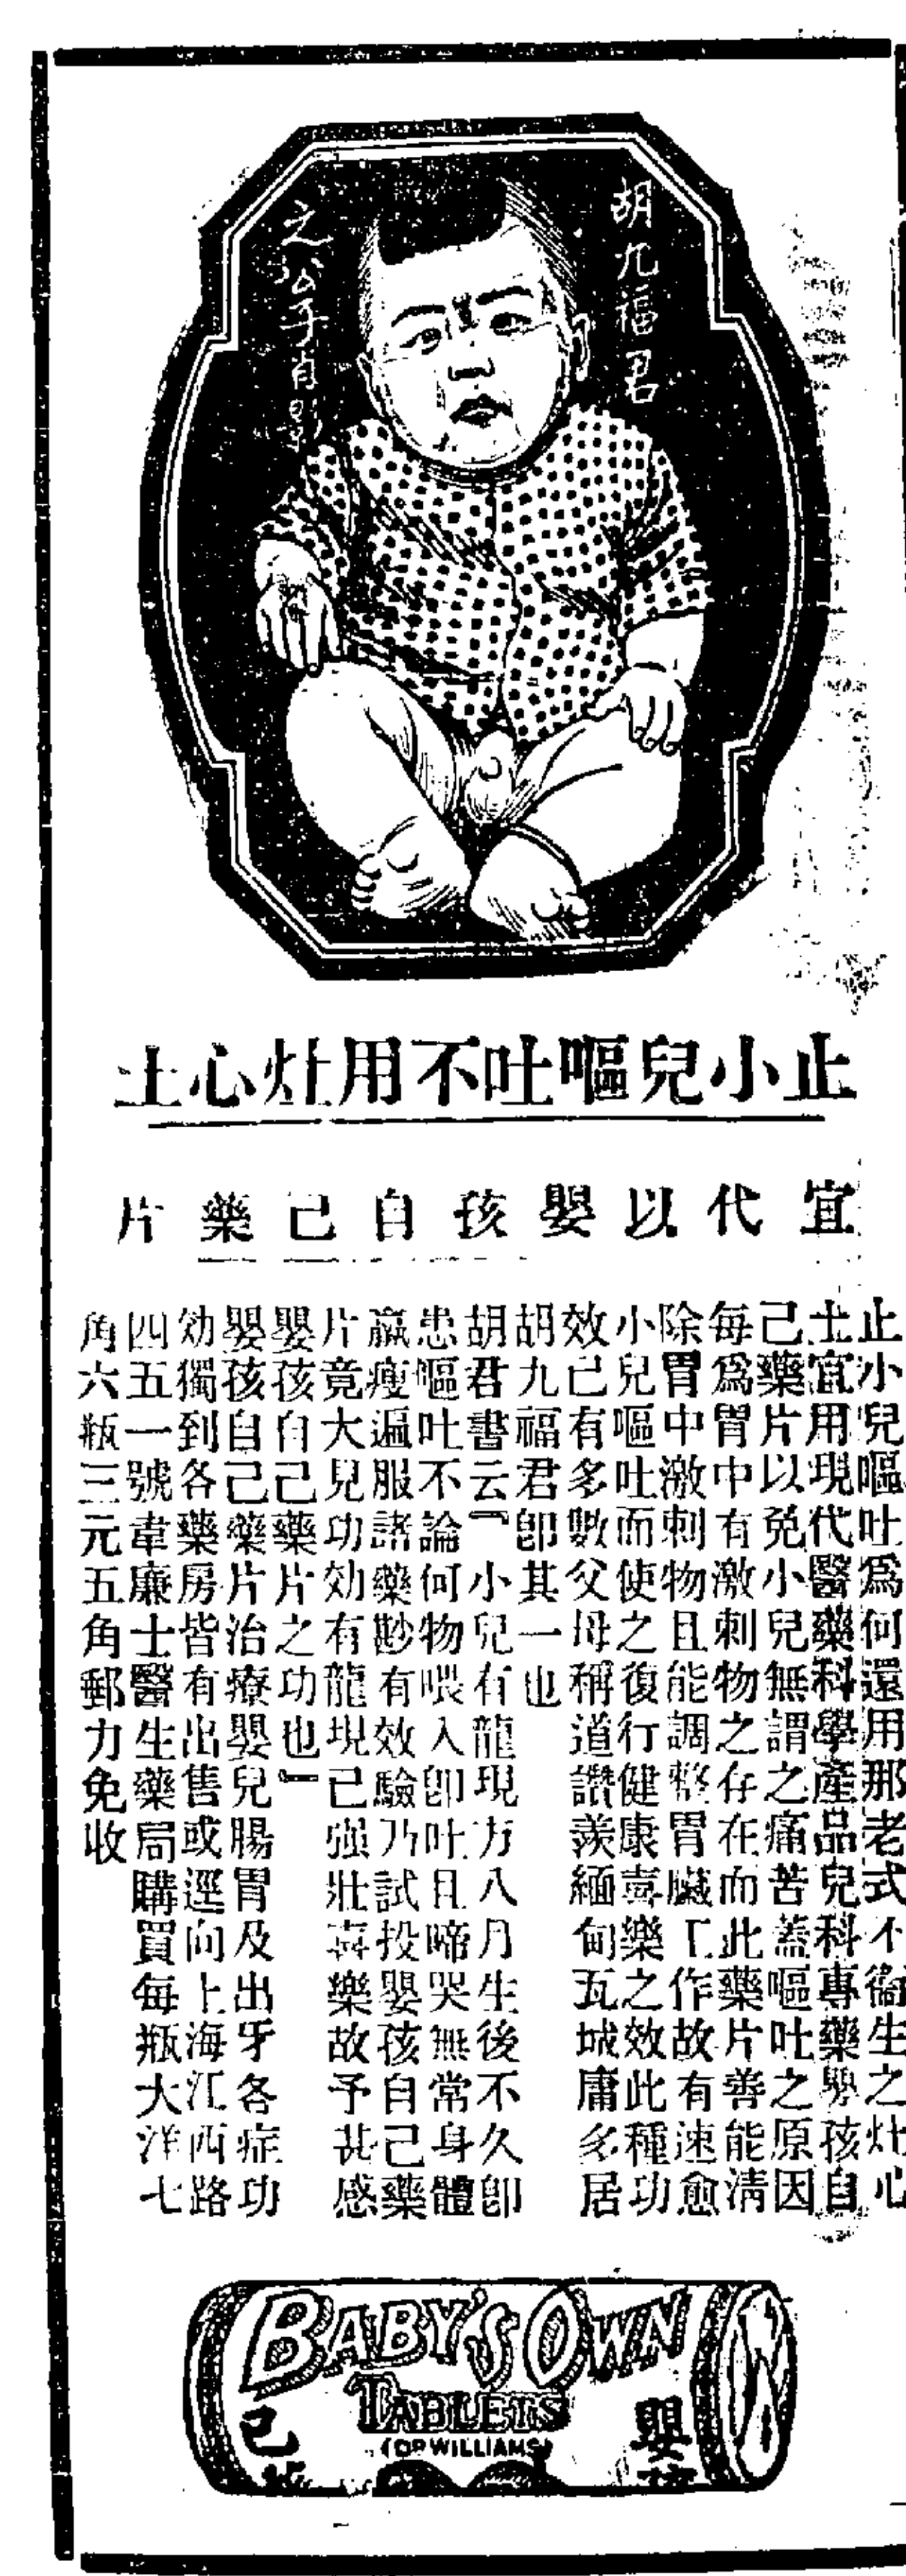 胡九福君
之公子肖影
止小兒嘔吐不用灶心土
宜代以嬰孩自己藥片
止小兒嘔吐爲何還用那老式不衞生之灶心
土宜用現代醫藥科學產品兒科專藥嬰孩自
己藥片以免小兒無謂之痛苦蓋嘔吐之原因
每爲胃中有激刺物之存在而此藥片善能淸
除胃中激刺物且能調整胃臟工作故有速愈
小兒嘔吐而使之復行健康喜樂之效此種功
效已有多數父母稱道讚羨緬甸瓦城庸多居
胡九福君卽其一也
胡君書云『小兒有龍現方八月生後不久卽
患嘔吐不論何物喂入卽吐且啼哭無常身體
羸瘦遍服諸藥尠有效驗乃試投嬰孩自己藥
片竟大見功効有龍現已强壯喜樂故予甚感
嬰孩自己藥片之功也』
嬰孩自己藥片治療嬰兒腸胃及出牙各症功
効獨到各藥房皆有出售或逕向上海江西路
四五一號韋廉士醫生藥局購買每瓶大洋七
角六瓶三元五角郵力免收
BABY'S OWN
TABLETS
(DR WILLIAMS)
嬰
己